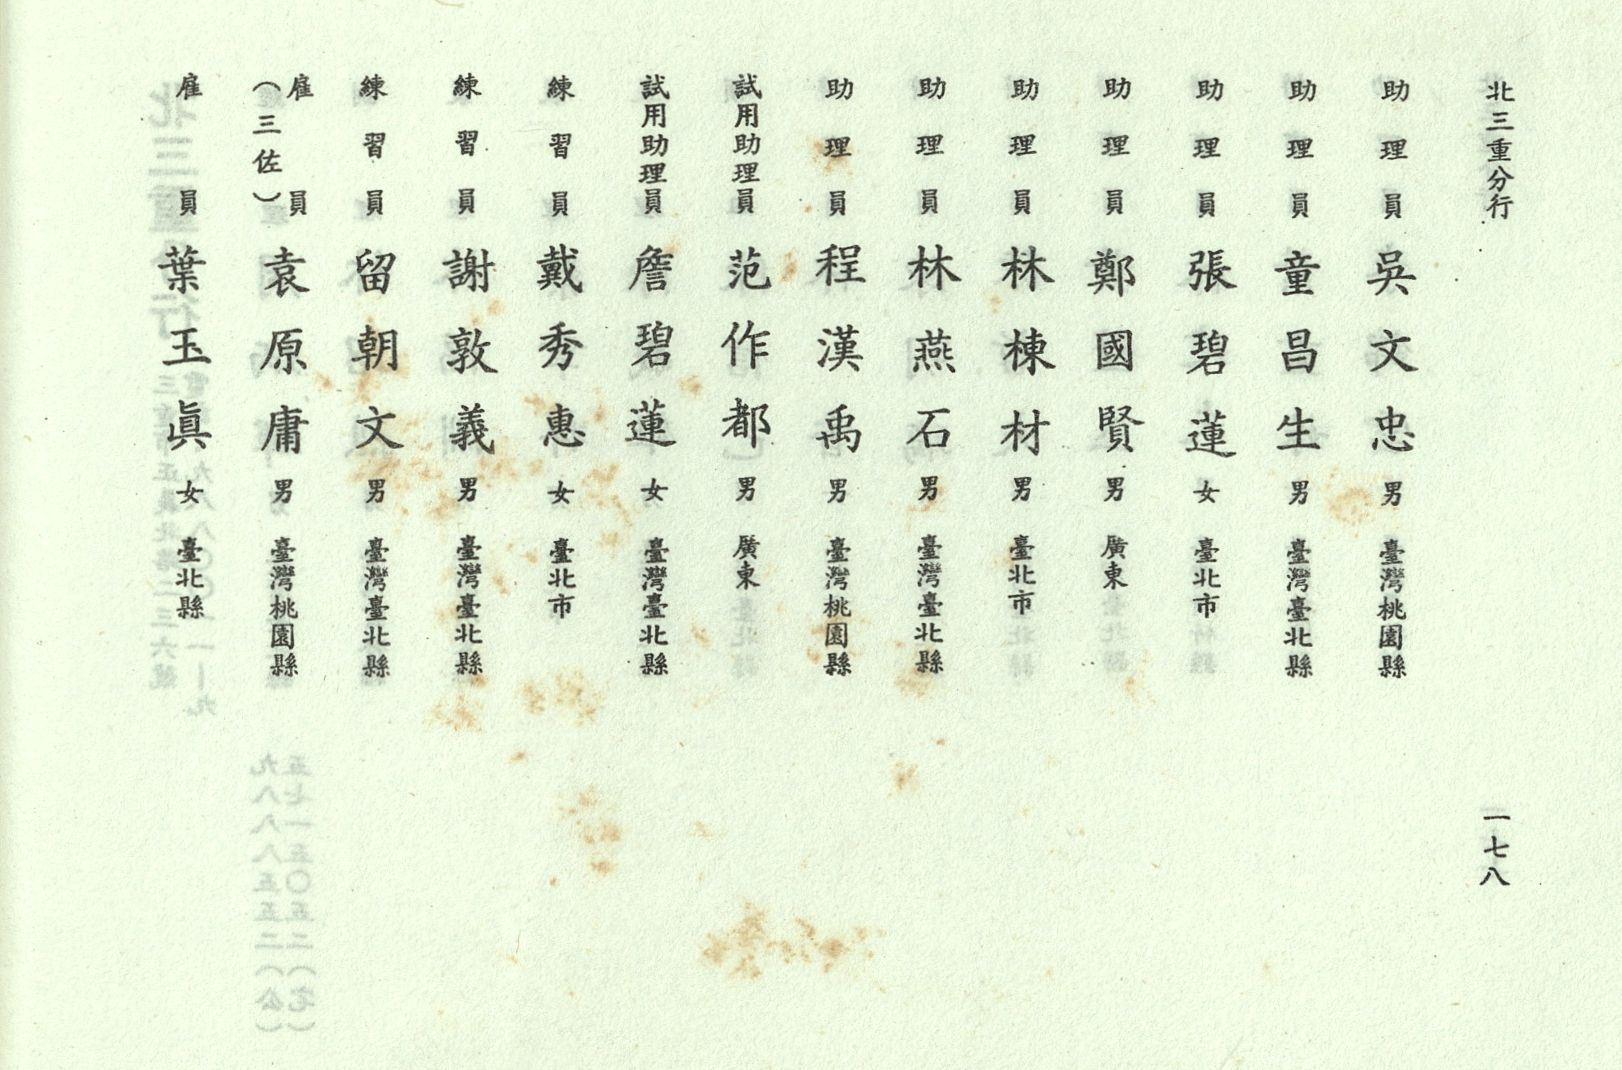 北三重分行
一七八
助理員 吳文忠 男 臺灣桃園縣
助理員 童昌生 男 臺灣臺北縣
助理員 張碧蓮 女 臺北市
助理員 鄭國賢 男 廣東
助理員 林棟材 男 臺北市
助理員 林燕石 男 臺灣臺北縣
助理員 程漢禹 男 臺灣桃園縣
試用助理員 范作都 男 廣東
試用助理員 詹碧蓮 女 臺灣臺北縣
練習員 戴秀惠 女 臺北市
練習員 謝敦義 男 臺灣臺北縣
練習員 留朝文 男 臺灣臺北縣
雇員（三佐） 袁原庸 男 臺灣桃園縣
雇員 葉玉眞 女 臺北縣